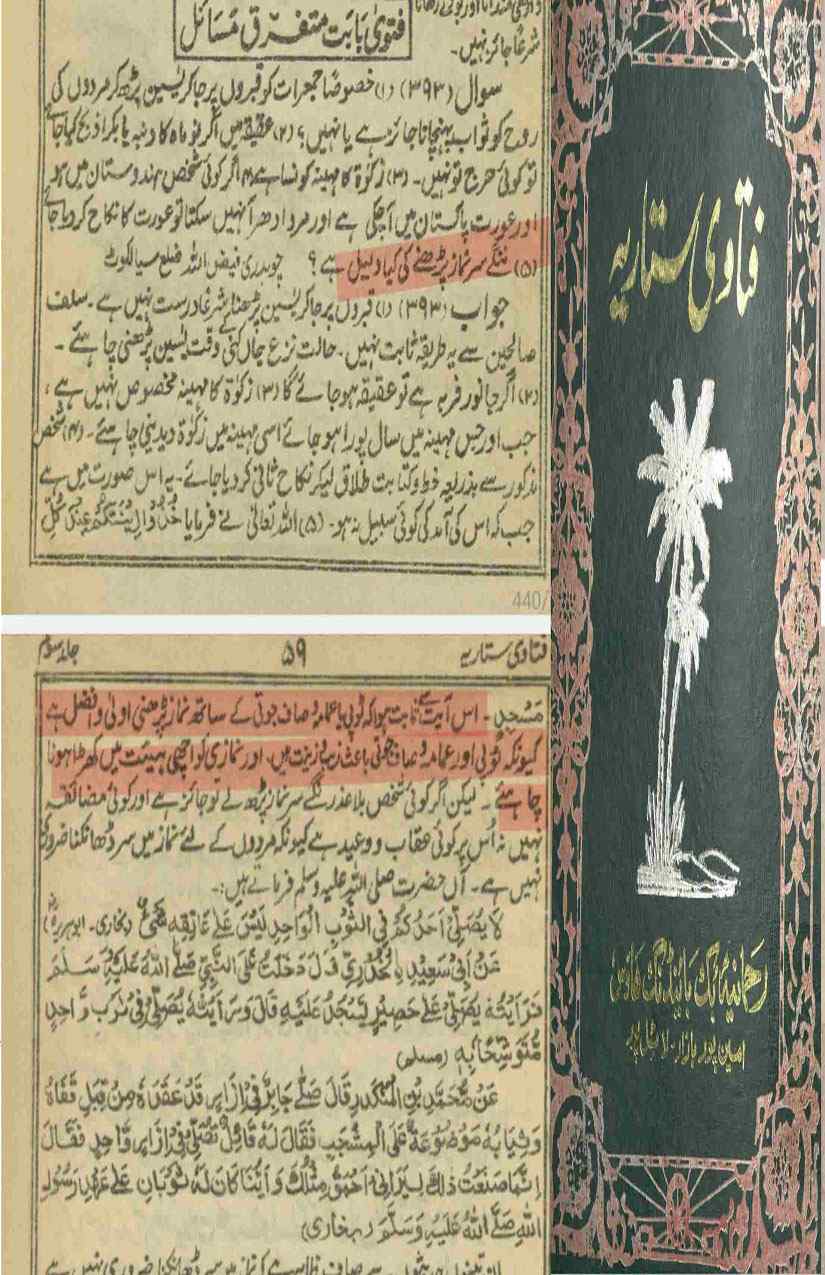 شرعًا جائز نہیں۔
فتویٰ بابت متفرق مسائل
سوال (۳۹۳) (۱) خصوصًا جمعرات کو قبروں پر جاکر یٰسین پڑھ کر مردوں کی
روح کو ثواب پہنچاتا جائز ہے یا نہیں؟ (۲) عقیقہ میں اگر نو ماہ کا دنبہ یا بکرا ذبح کیا جائے
تو کوئی حرج تو نہیں۔ (۳) زکوٰۃ کا مہینہ کونسا ہے ۴) اگر کوئی شخص ہندوستان میں ہو
اور عورت پاکستان میں آچکی ہے اور مرد ادھر آ نہیں سکتا تو عورت کا نکاح کر دیا جائے
(۵) ننگے سر نماز پڑھنے کی کیا دلیل ہے؟ چوہدری فیض اللہ ضلع سیالکوٹ
جواب (۳۹۳) (۱) قبروں پر جاکر یٰسین پڑھنا شرعًا درست نہیں ہے۔ سلف
صالحین سے یہ طریقہ ثابت نہیں۔ حالت نزع جاں کنی کے وقت یٰسین پڑھنی چاہئے۔
(۲) اگر جانور فربہ ہے تو عقیقہ ہو جائے گا (۳) زکوٰۃ کا مہینہ مخصوص نہیں ہے،
جب اور جس مہینہ میں سال پورا ہو جائے اسی مہینہ میں زکوٰۃ دیدینی چاہئے۔ (۴) شخص
مذکور سے بذریعہ خط و کتابت طلاق لیکر نکاح ثانی کر دیا جائے۔ یہ اس صورت میں ہے
جب کہ اس کی آمد کی کوئی سبیل نہ ہو۔ (۵) اللہ تعالیٰ نے فرمایا خُذُوْا زِيْنَتَكُمْ عِنْدَ كُلِّ
440/
فتاویٰ ستاریہ ۵۹ جلد سوم
مَسْجِدٍ۔ اس آیت سے ثابت ہوا کہ ٹوپی یا عمامہ و صاف جوتی کے ساتھ نماز پڑھنی اولیٰ و افضل ہے
کیونکہ ٹوپی اور عمامہ و صاف جوتی باعث زیب و زینت ہیں۔ اور نمازی کو اچھی ہیئت میں کھڑا ہونا
چاہئے۔ لیکن اگر کوئی شخص بلا عذر ننگے سر نماز پڑھ لے تو جائز ہے اور کوئی مضائقہ
نہیں نہ اُس پر کوئی عقاب و وعید ہے کیونکہ مردوں کے لئے نماز میں سر ڈھانکنا ضروری
نہیں ہے۔ آں حضرت صلی اللہ علیہ وسلم فرماتے ہیں:۔
لَا يُصَلِّيْ اَحَدُكُمْ فِي الثَّوْبِ الْوَاحِدِ لَيْسَ عَلٰى عَاتِقِهٖ شَيْءٌ (بخاری۔ ابوہریرہؓ)
عَنْ اَبِيْ سَعِيْدِ نِ الْخُدْرِيِّ قَالَ دَخَلْتُ عَلَى النَّبِيِّ صَلَّى اللهُ عَلَيْهِ وَسَلَّمَ
فَرَاَيْتُهٗ يُصَلِّيْ عَلٰى حَصِيْرٍ يَسْجُدُ عَلَيْهِ قَالَ وَرَاَيْتُهٗ يُصَلِّيْ فِيْ ثَوْبٍ وَّاحِدٍ
مُتَوَشِّحًا بِهٖ (مسلم)
عَنْ مُحَمَّدِ بْنِ الْمُنْكَدِرِ قَالَ صَلّٰى جَابِرٌ فِيْ اِزَارٍ قَدْ عَقَدَهٗ مِنْ قِبَلِ قَفَاهُ
وَثِيَابُهٗ مَوْضُوْعَةٌ عَلَى الْمِشْجَبِ فَقَالَ لَهٗ قَائِلٌ تُصَلِّيْ فِيْ اِزَارٍ وَّاحِدٍ فَقَالَ
اِنَّمَا صَنَعْتُ ذٰلِكَ لِيَرَانِيْ اَحْمَقُ مِثْلُكَ وَاَيُّنَا كَانَ لَهٗ ثَوْبَانِ عَلٰى عَهْدِ رَسُوْلِ
اللهِ صَلَّى اللهُ عَلَيْهِ وَسَلَّمَ (بخاری)
فتاویٰ ستاریہ
رحمانیہ بک بائینڈنگ ہاؤس
امین پور بازار۔ لائلپور